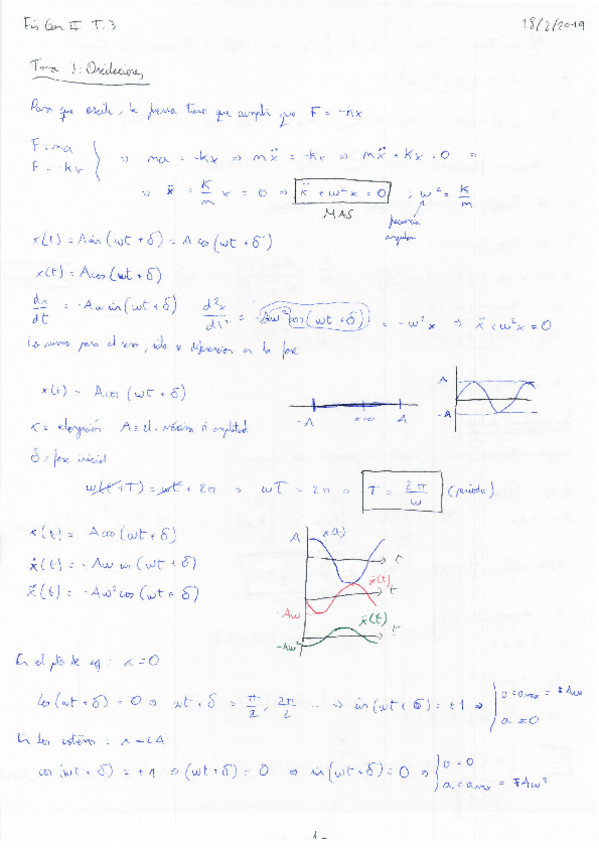 Fis Gen II T.3 18/2/2019
Tema 3: Oscilaciones
Para que oscile, la fuerza tiene que cumplir que F = -Kx
F = ma
F = -Kx
⇒ ma = -Kx ⇒ mẍ = -Kx ⇒ mẍ + Kx = 0 ⇒
⇒ ẍ + K/m x = 0 ⇒ ẍ + ω²x = 0 , ω² = K/m
MAS
frecuencia
angular
x(t) = A sin(ωt + δ) = A cos(ωt + δ')
x(t) = A cos(ωt + δ)
dx/dt = -Aω sin(ωt + δ) d²x/dt² = -Aω² cos(ωt + δ) = -ω²x ⇒ ẍ + ω²x = 0
Lo mismo para el seno, sólo se diferencian en la fase
x(t) = A cos(ωt + δ)
-A x=0 A
A
-A
x = elongación A = el. máxima o amplitud
δ = fase inicial
ω(t + T) = ωt + 2π ⇒ ωT = 2π ⇒ T = 2π/ω (periodo)
x(t) = A cos(ωt + δ)
ẋ(t) = -Aω sin(ωt + δ)
ẍ(t) = -Aω² cos(ωt + δ)
A x(t)
t
ẋ(t)
t
-Aω
ẍ(t)
t
-Aω²
En el pto de eq: x = 0
cos(ωt + δ) = 0 ⇒ ωt + δ = π/2, 2π/2 ... ⇒ sin(ωt + δ) = ±1 ⇒ v = vmax = ±Aω
a = 0
En los extremos: x = ±A
cos(ωt + δ) = ±1 ⇒ (ωt + δ) = 0 ⇒ sin(ωt + δ) = 0 ⇒ v = 0
a = amax = ∓Aω²
- 1 -